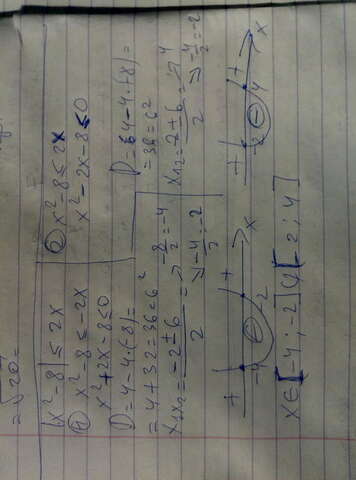 = √20 =
|x² - 8| ≤ 2x
x² - 8 ≤ -2x
x² + 2x - 8 ≤ 0
D = 4 - 4·(-8) =
= 4 + 32 = 36 = 6²
x₁x₂ = -2 ± 6 / 2 = ↗ -8/2 = -4
↘ -4/2 = -2
+ - +
-4 2 x
② x² - 8 ≤ 2x
x² - 2x - 8 ≤ 0
D = 64 - 4·(-8) =
= 36 = 6²
x₁₂ = 2 ± 6 / 2 = ↗ 4
↘ -4/2 = -2
+ - +
-2 4 x
x ∈ [-4; -2] ∪ [-2; 4]